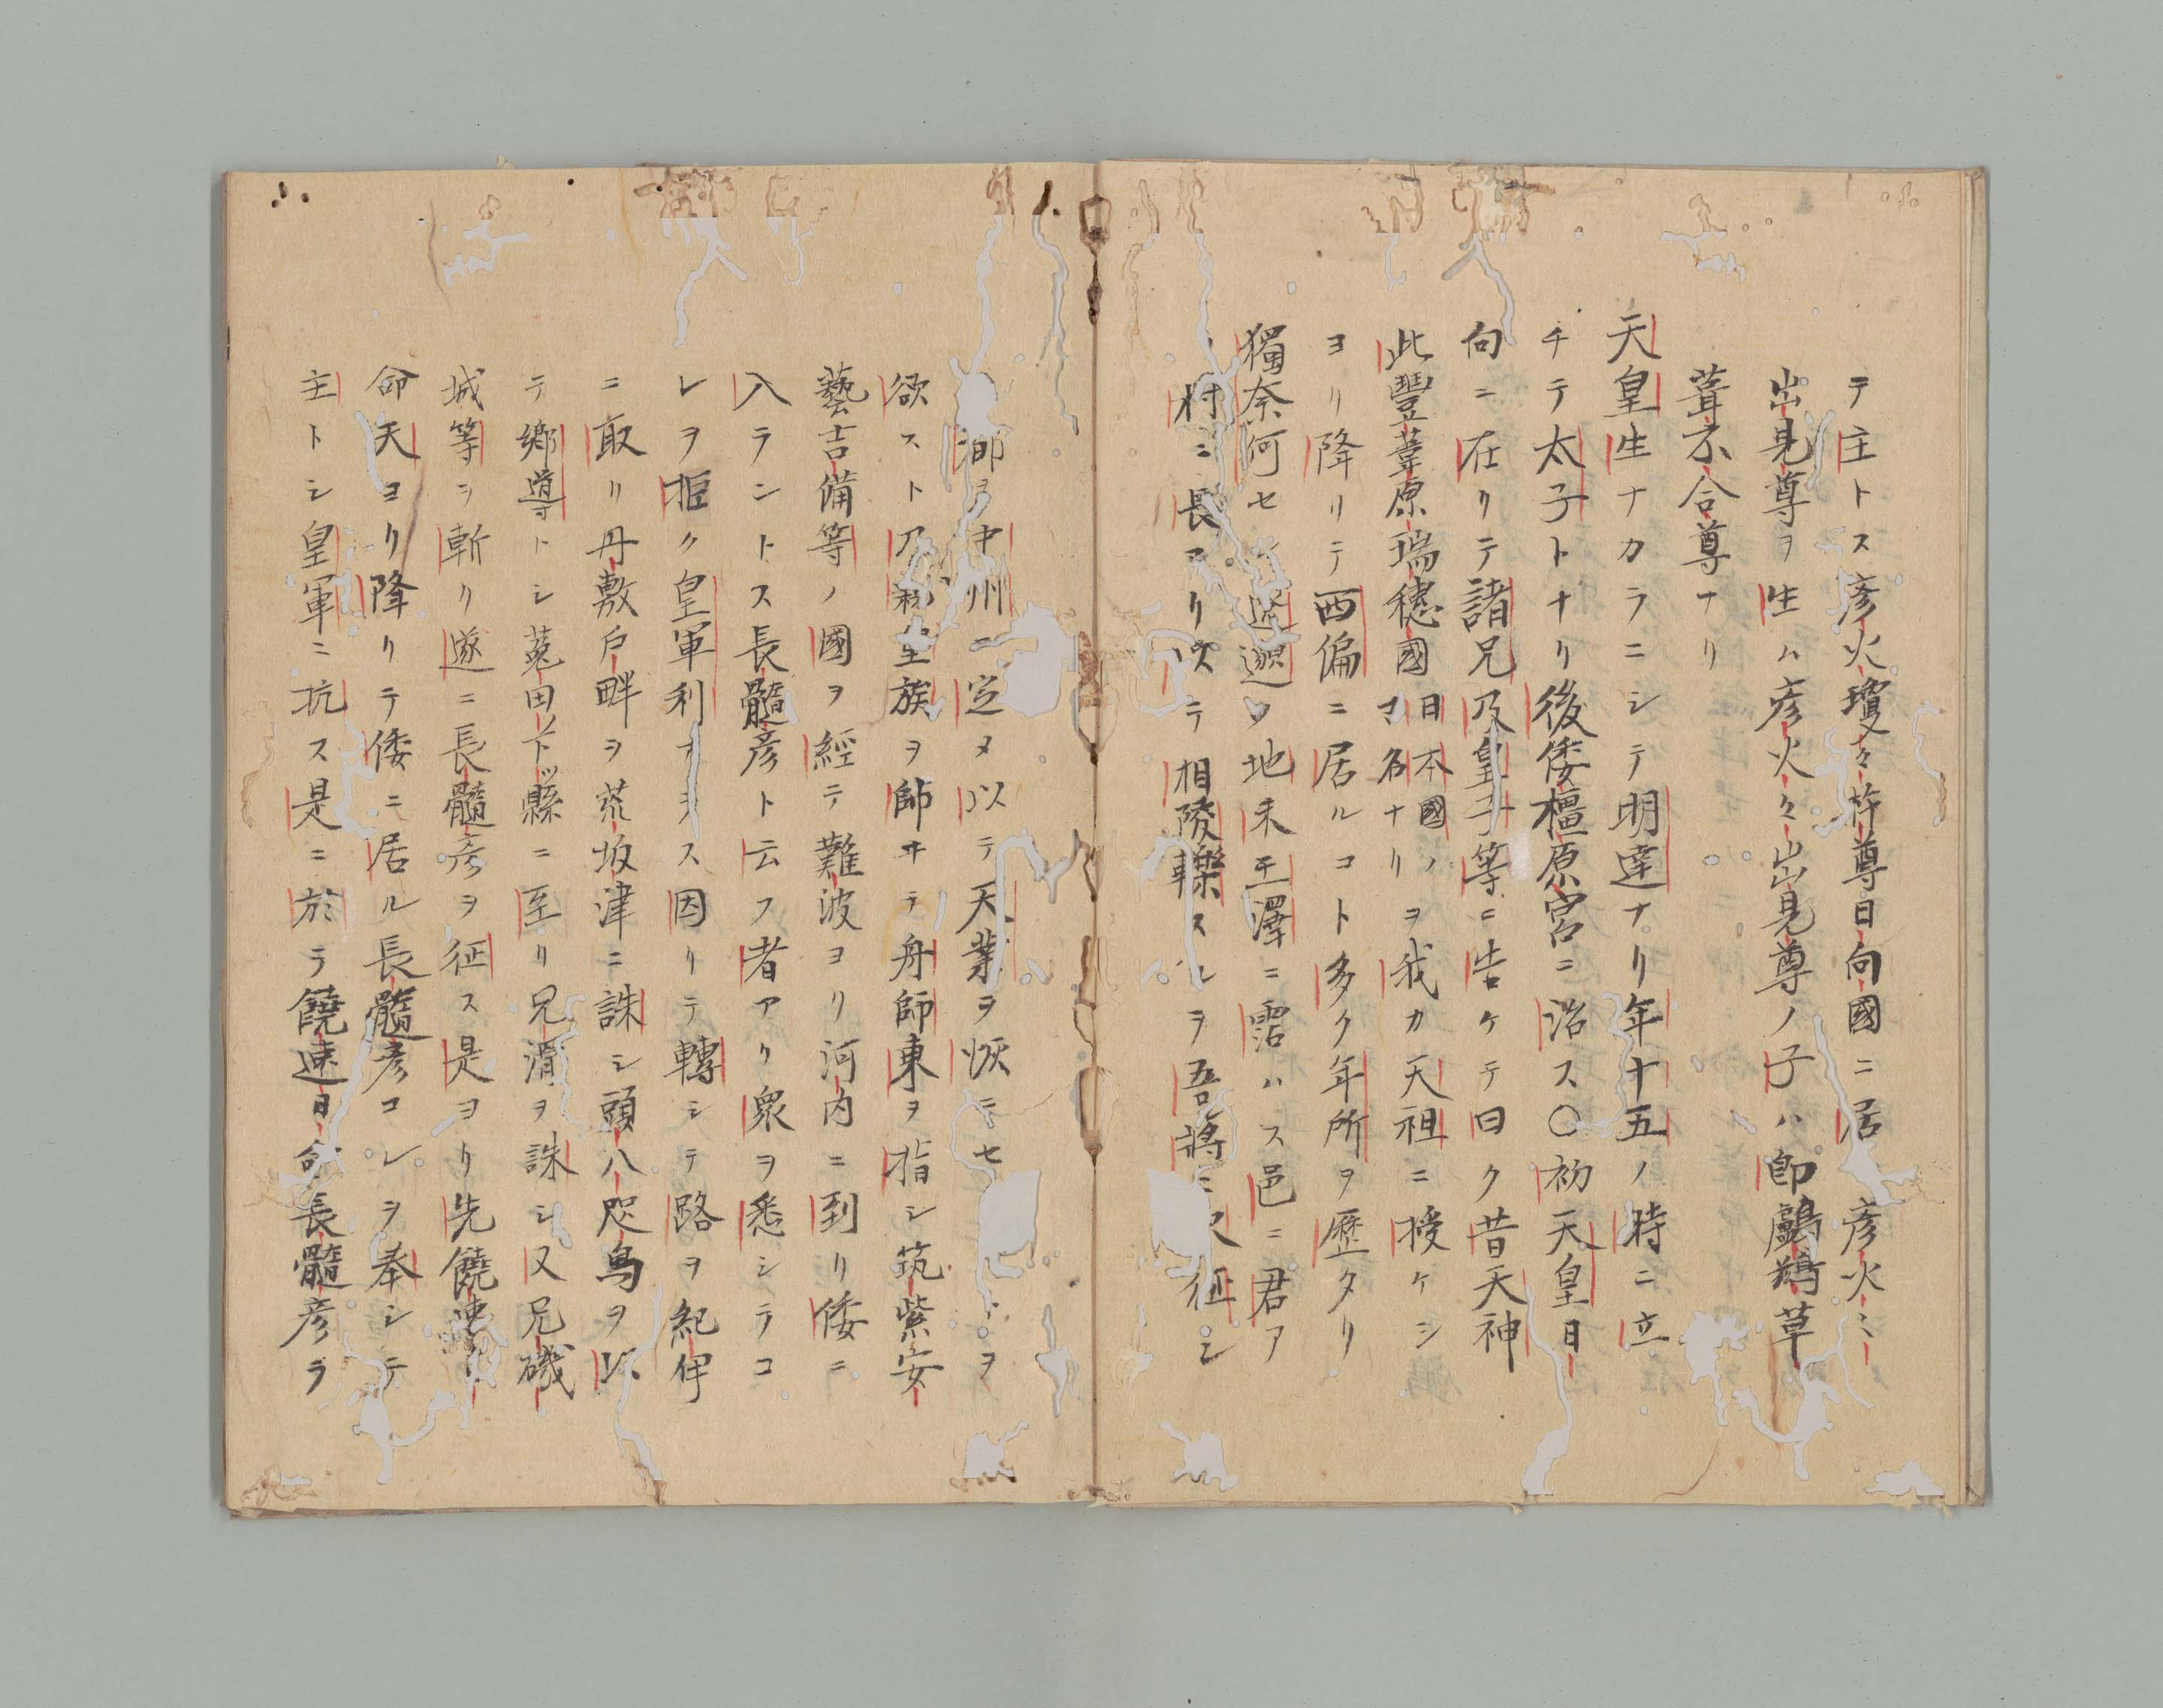 テ主トス彦火瓊々杵尊日向國ニ居 彦火〻
出見尊ヲ生ム彦火々出見尊ノ子ハ卽鸕鷀草
葺不合尊ナリ
天皇生ナカラニシテ明達ナリ年十五ノ時ニ立
チテ太子トナリ後倭橿原宮ニ治ス〇初天皇日
向ニ在リテ諸兄及皇子等ニ告ケテ曰ク昔天神
此豐葦原瑞穗國日本國ノマ名ナリヲ我カ天祖ニ授ケシ
ヨリ降リテ西偏ニ居ルコト多ク年所ヲ歷タリ
獨奈何セ 遐邈ノ地未王澤ニ霑ハス邑ニ君ア
リ村ニ長アリ以テ相陵轢スルヲ吾將ニ 征シ
都ヲ中州ニ定メ以テ天業ヲ恢ニセ トヲ
欲スト乃 皇族ヲ帥ヰテ舟師東ヲ指シ筑紫安
藝吉備等ノ國ヲ經テ難波ヨリ河内ニ到リ倭ニ
入ラントス長髓彦ト云フ者アリ衆ヲ悉シテコ
レヲ拒ク皇軍利 ス因リテ轉シテ路ヲ紀伊
ニ取リ丹敷戶畔ヲ荒坂津ニ誅シ頭八咫烏ヲ以
テ鄉導トシ菟田下縣ニ至リ兄猾ヲ誅シ又兄磯
城等ヲ斬リ遂ニ長髓彦ヲ征ス是ヨリ先饒速
命天ヨリ降リテ倭ニ居ル長髓彦コレヲ奉シテ
主トシ皇軍ニ抗ス是ニ於テ饒速日命長髓彦ヲ